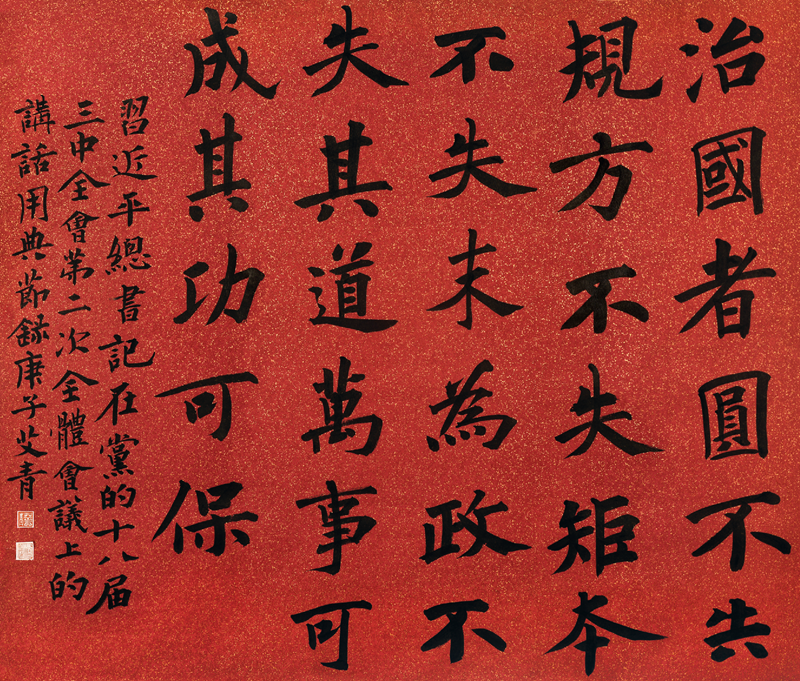 治國者圓不失
規方不失矩本
不失末為政不
失其道萬事可
成其功可保
習近平總書記在黨的十八届
三中全會第二次全體會議上的
講話用典節録庚子艾青